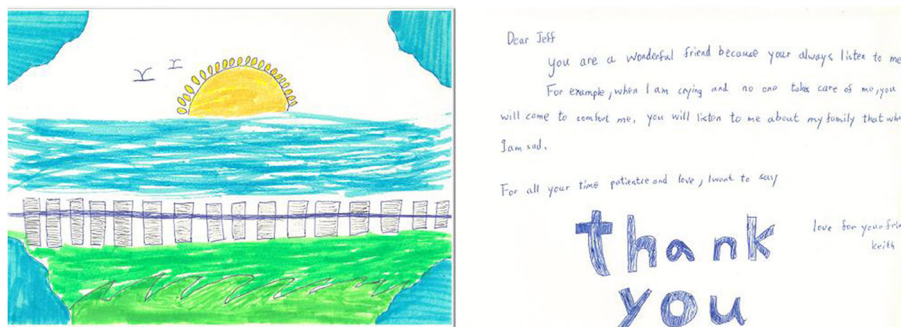 Dear Jeff
you are a wonderful friend because your always listen to me
For example, when I am crying and no one takes care of me, you
will come to comfort me, you will listen to me about my family that
I am sad.
For all your time patientce and love, I want to say
thank
love for your
keith
you